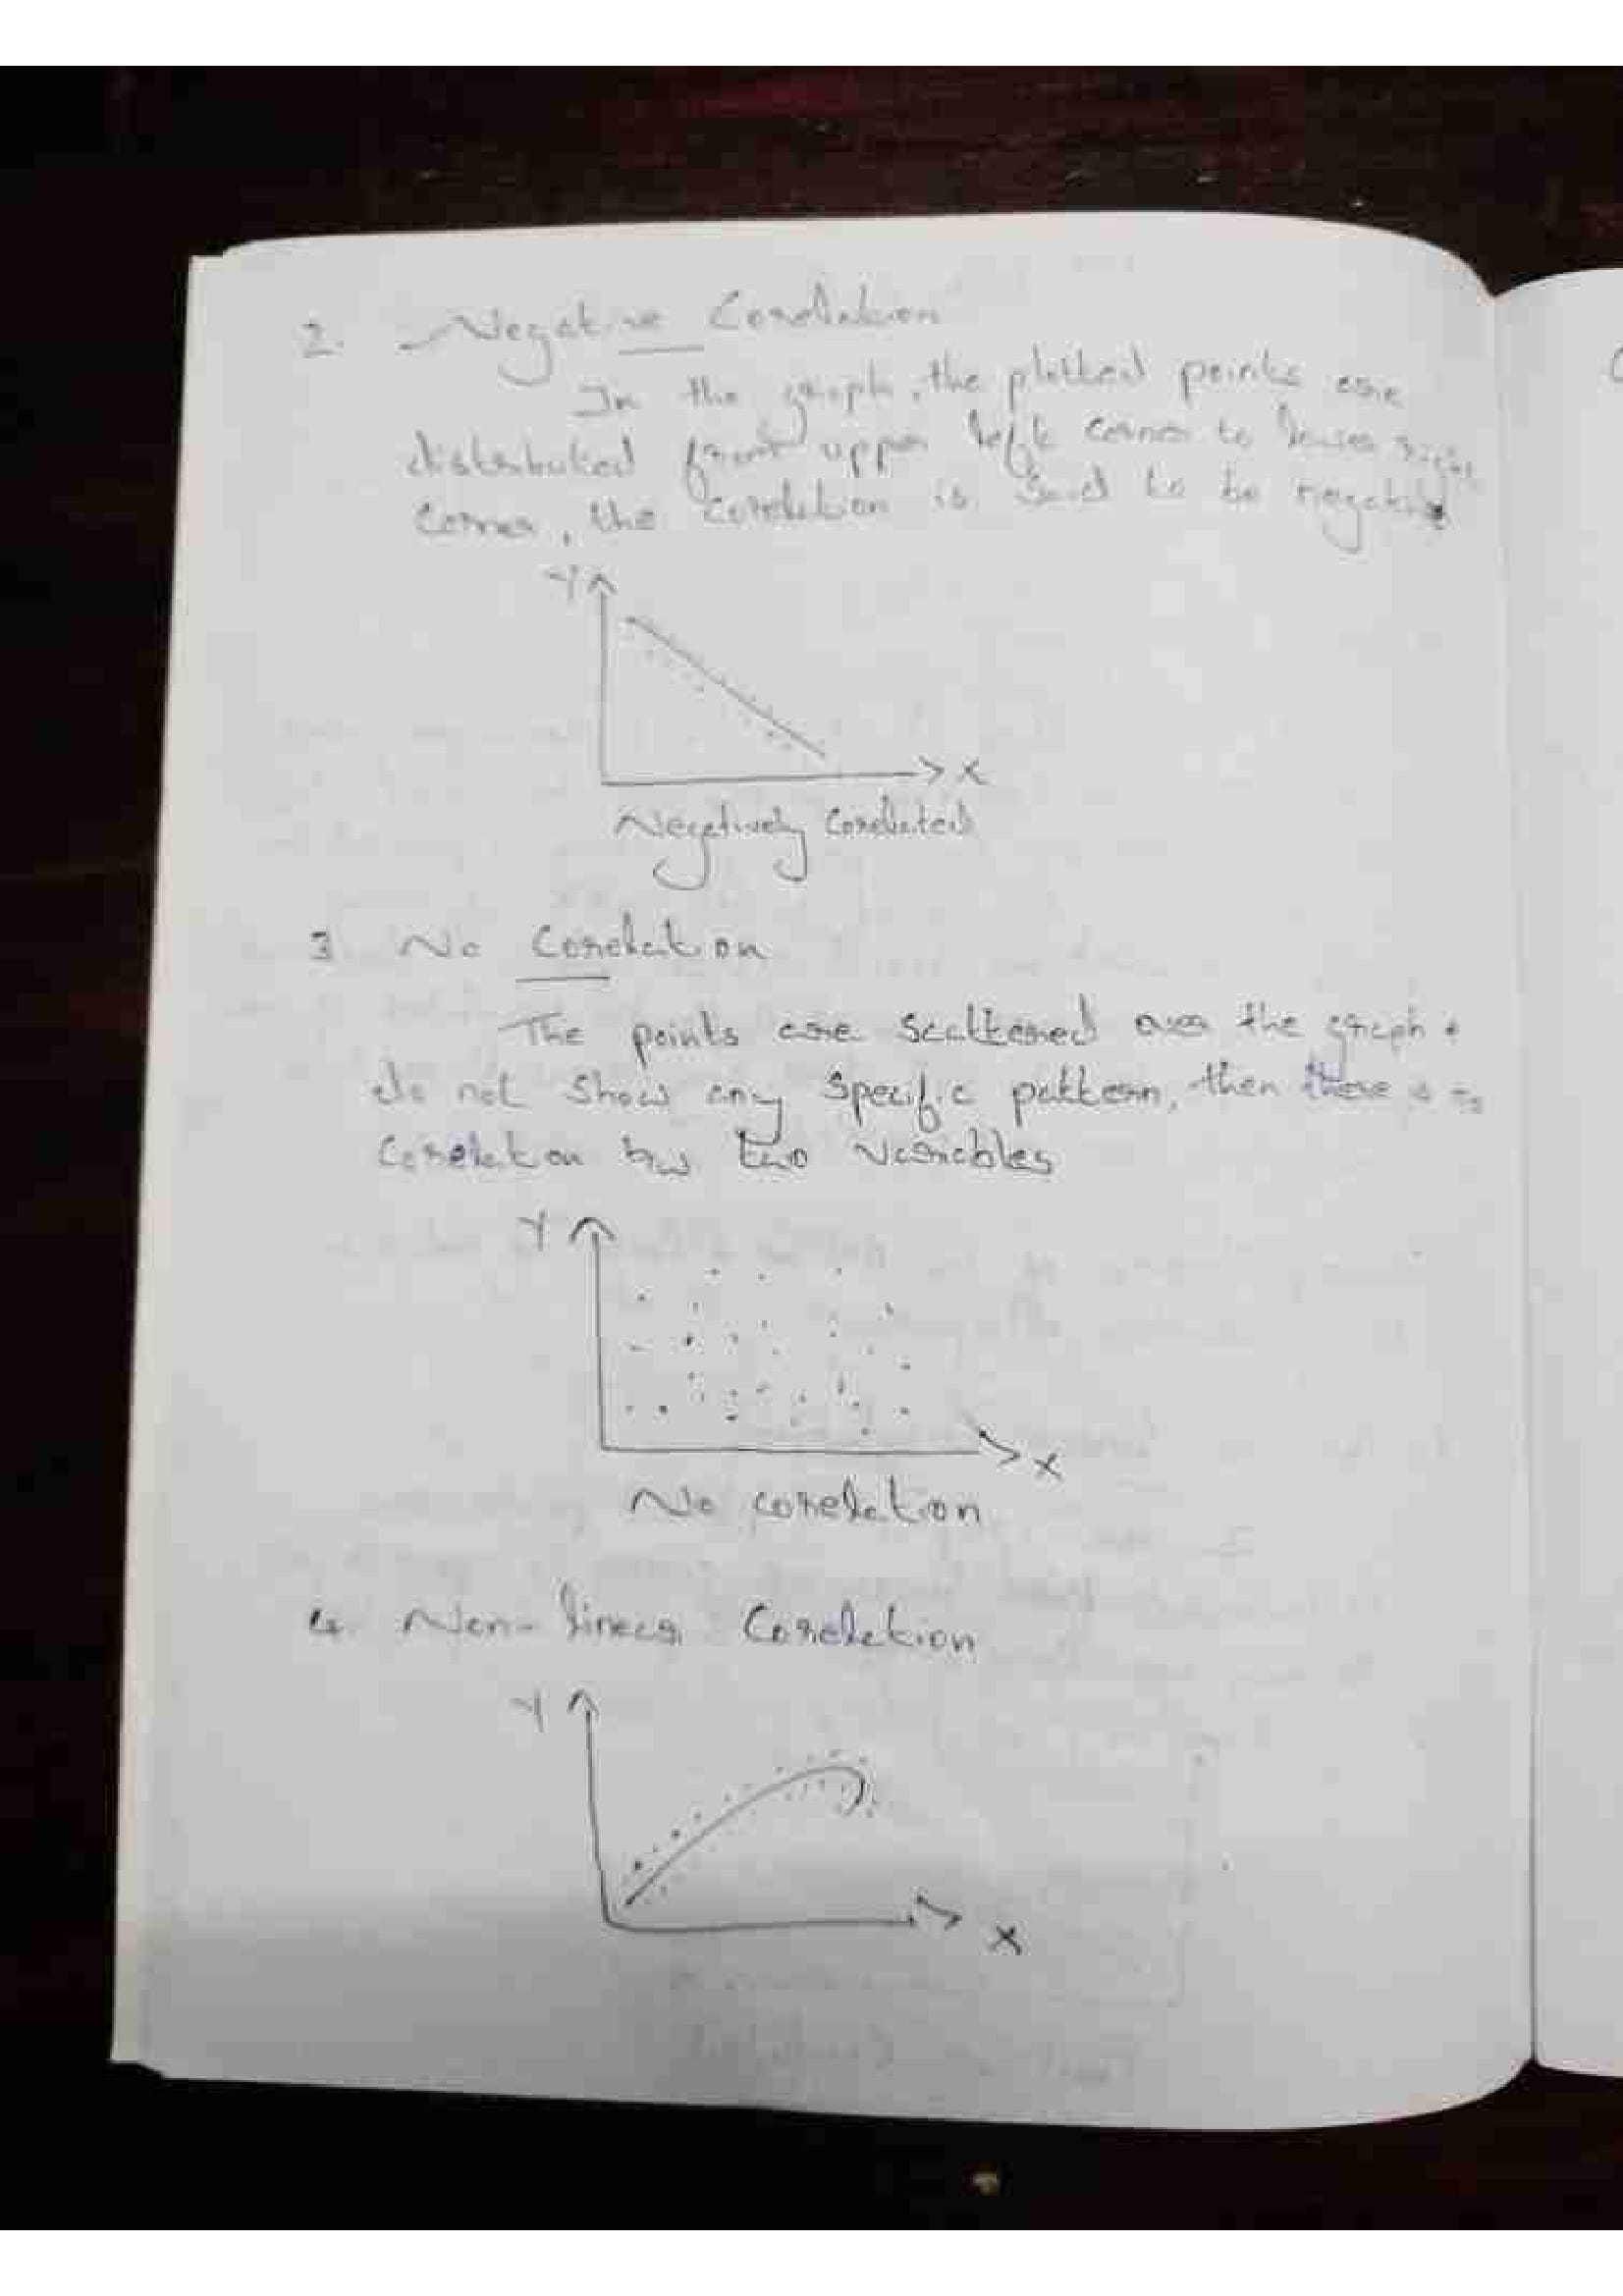 2. Negative Corelation
In the graph, the plotted points are
distributed from upper left corner to lower right
corner, the corelation is said to be negative
Y
X
Negatively Corelated
3 No Corelation
The points are scattered over the graph &
do not show any specific pattern, then there is no
Corelation b/w two variables
Y
X
No corelation
4. Non-linear Corelation
Y
X